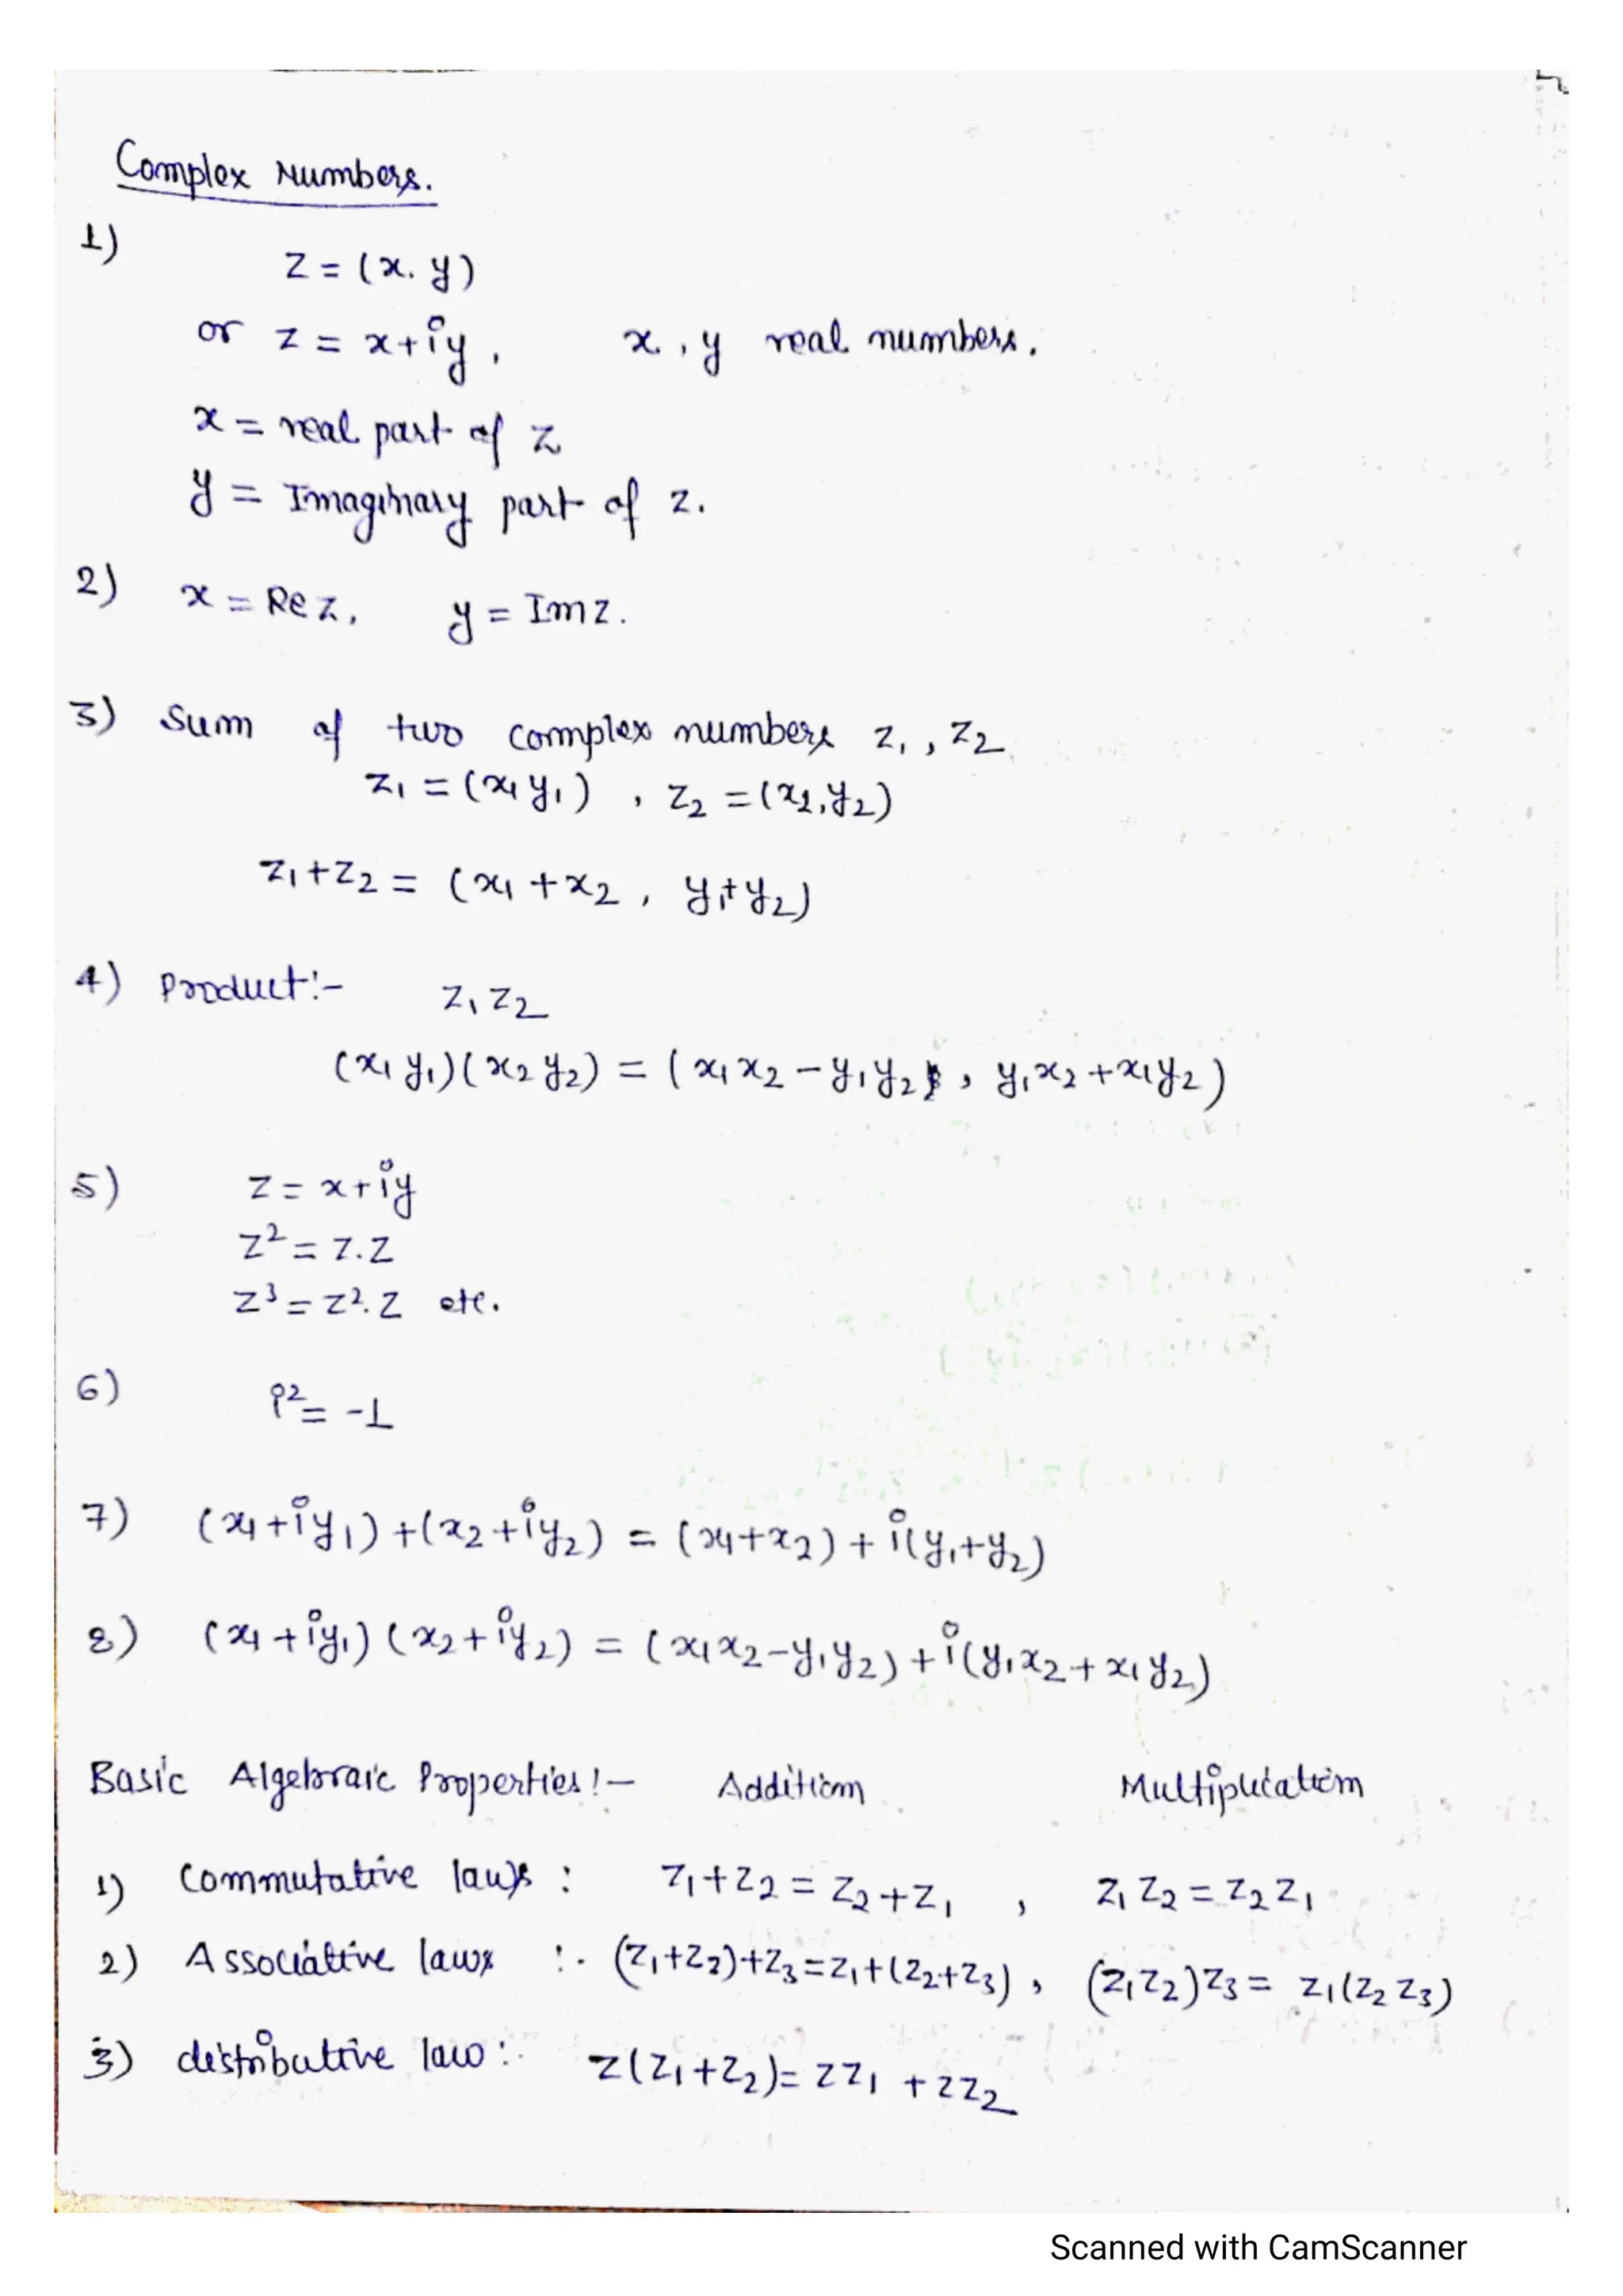 Complex Numbers.
1)
z = (x. y)
or z = x+iy, x, y real numbers.
x = real part of z
y = Imaginary part of z.
2) x = Re z, y = Im z.
3) Sum of two complex numbers z₁, z₂
z₁ = (x₁ y₁) , z₂ = (x₂, y₂)
z₁+z₂ = (x₁ + x₂ , y₁+y₂)
4) Product:- z₁ z₂
(x₁ y₁)(x₂ y₂) = (x₁ x₂ - y₁y₂ , y₁x₂ + x₁y₂)
5) z = x+iy
z² = z.z
z³ = z².z etc.
6) i² = -1
7) (x₁+iy₁)+(x₂+iy₂) = (x₁+x₂) + i(y₁+y₂)
8) (x₁+iy₁) (x₂+iy₂) = (x₁x₂-y₁y₂) + i(y₁x₂+x₁y₂)
Basic Algebraic Properties:- Addition Multiplication
1) Commutative laws : z₁+z₂ = z₂+z₁ , z₁z₂ = z₂z₁
2) Associative laws :- (z₁+z₂)+z₃ = z₁+(z₂+z₃) , (z₁z₂)z₃ = z₁(z₂ z₃)
3) distributive law :- z(z₁+z₂) = zz₁ + zz₂
Scanned with CamScanner